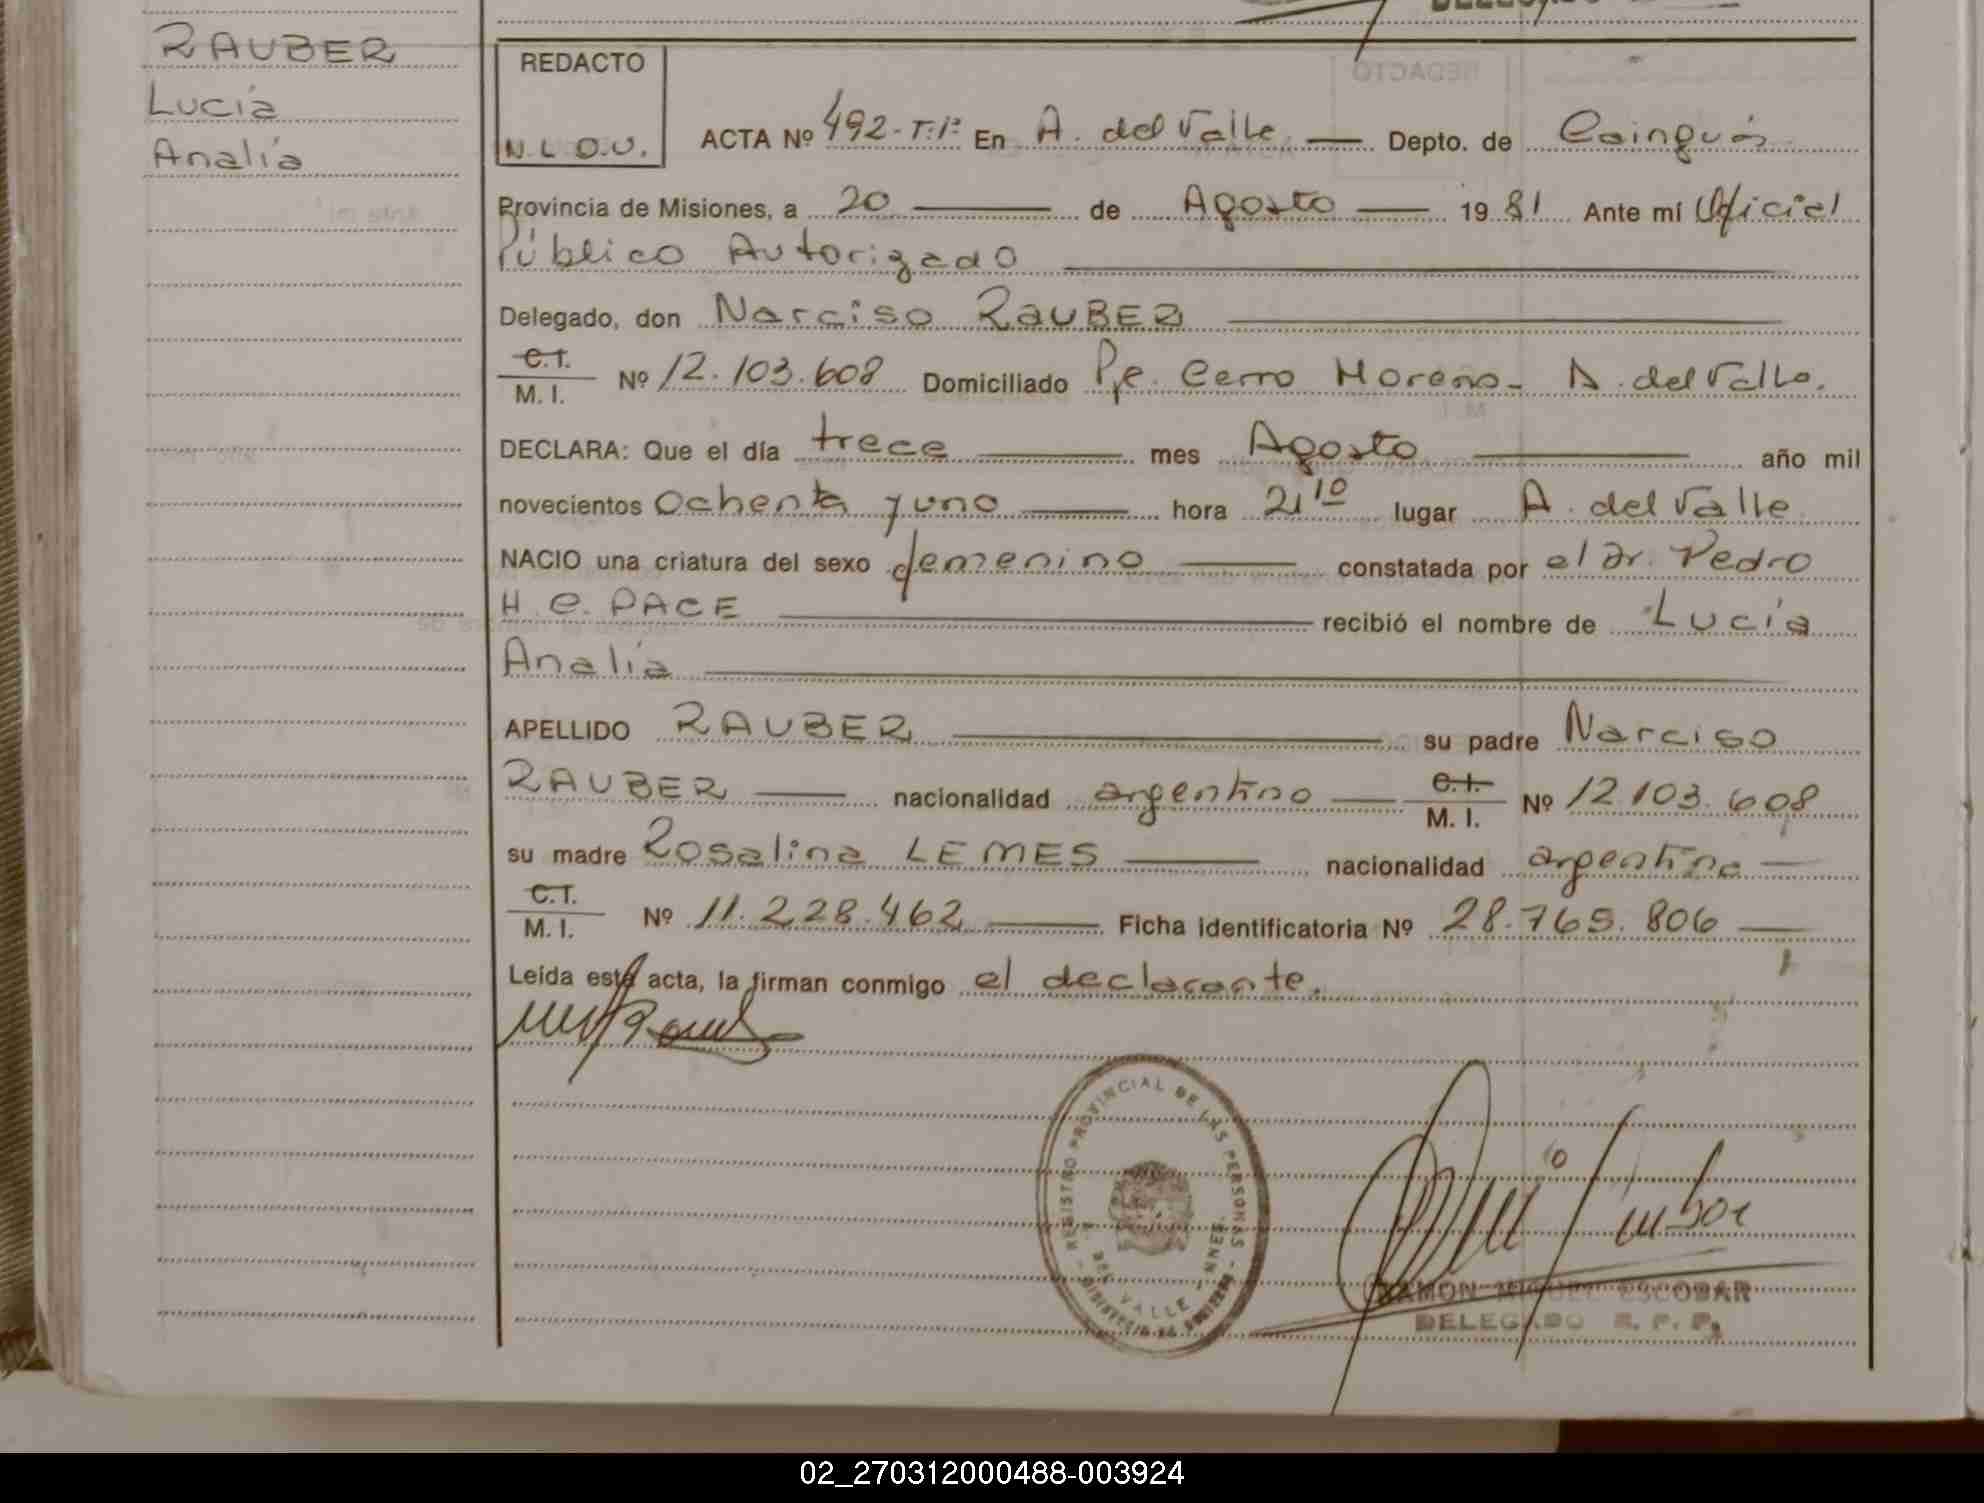 RAUBER
Lucía
Analía
REDACTO
N.L.O.U.
ACTA Nº 492-T:1º En A. del Valle Depto. de Cainguás
Provincia de Misiones, a 20 de Agosto 1981 Ante mí Oficial
Público Autorizado
Delegado, don Narciso RAUBER
C.I.
M. I. Nº 12.103.608 Domiciliado Pje. Cerro Moreno - A. del Valle.
DECLARA: Que el día trece mes Agosto año mil
novecientos Ochenta y uno hora 21 10 lugar A. del Valle
NACIO una criatura del sexo femenino constatada por el Dr. Pedro
H. C. PACE recibió el nombre de Lucía
Analía
APELLIDO RAUBER su padre Narciso
RAUBER nacionalidad argentino C.I. M. I. Nº 12.103.608
su madre Rosalina LEMES nacionalidad argentina
C.I.
M. I. Nº 11.228.462 Ficha identificatoria Nº 28.765.806
Leída esta acta, la firman conmigo el declarante.
REGISTRO PROVINCIAL DE LAS PERSONAS
DEL VALLE - MNES.
RAMON MIGUEL ESCOBAR
DELEGADO R. P. P.
02_270312000488-003924